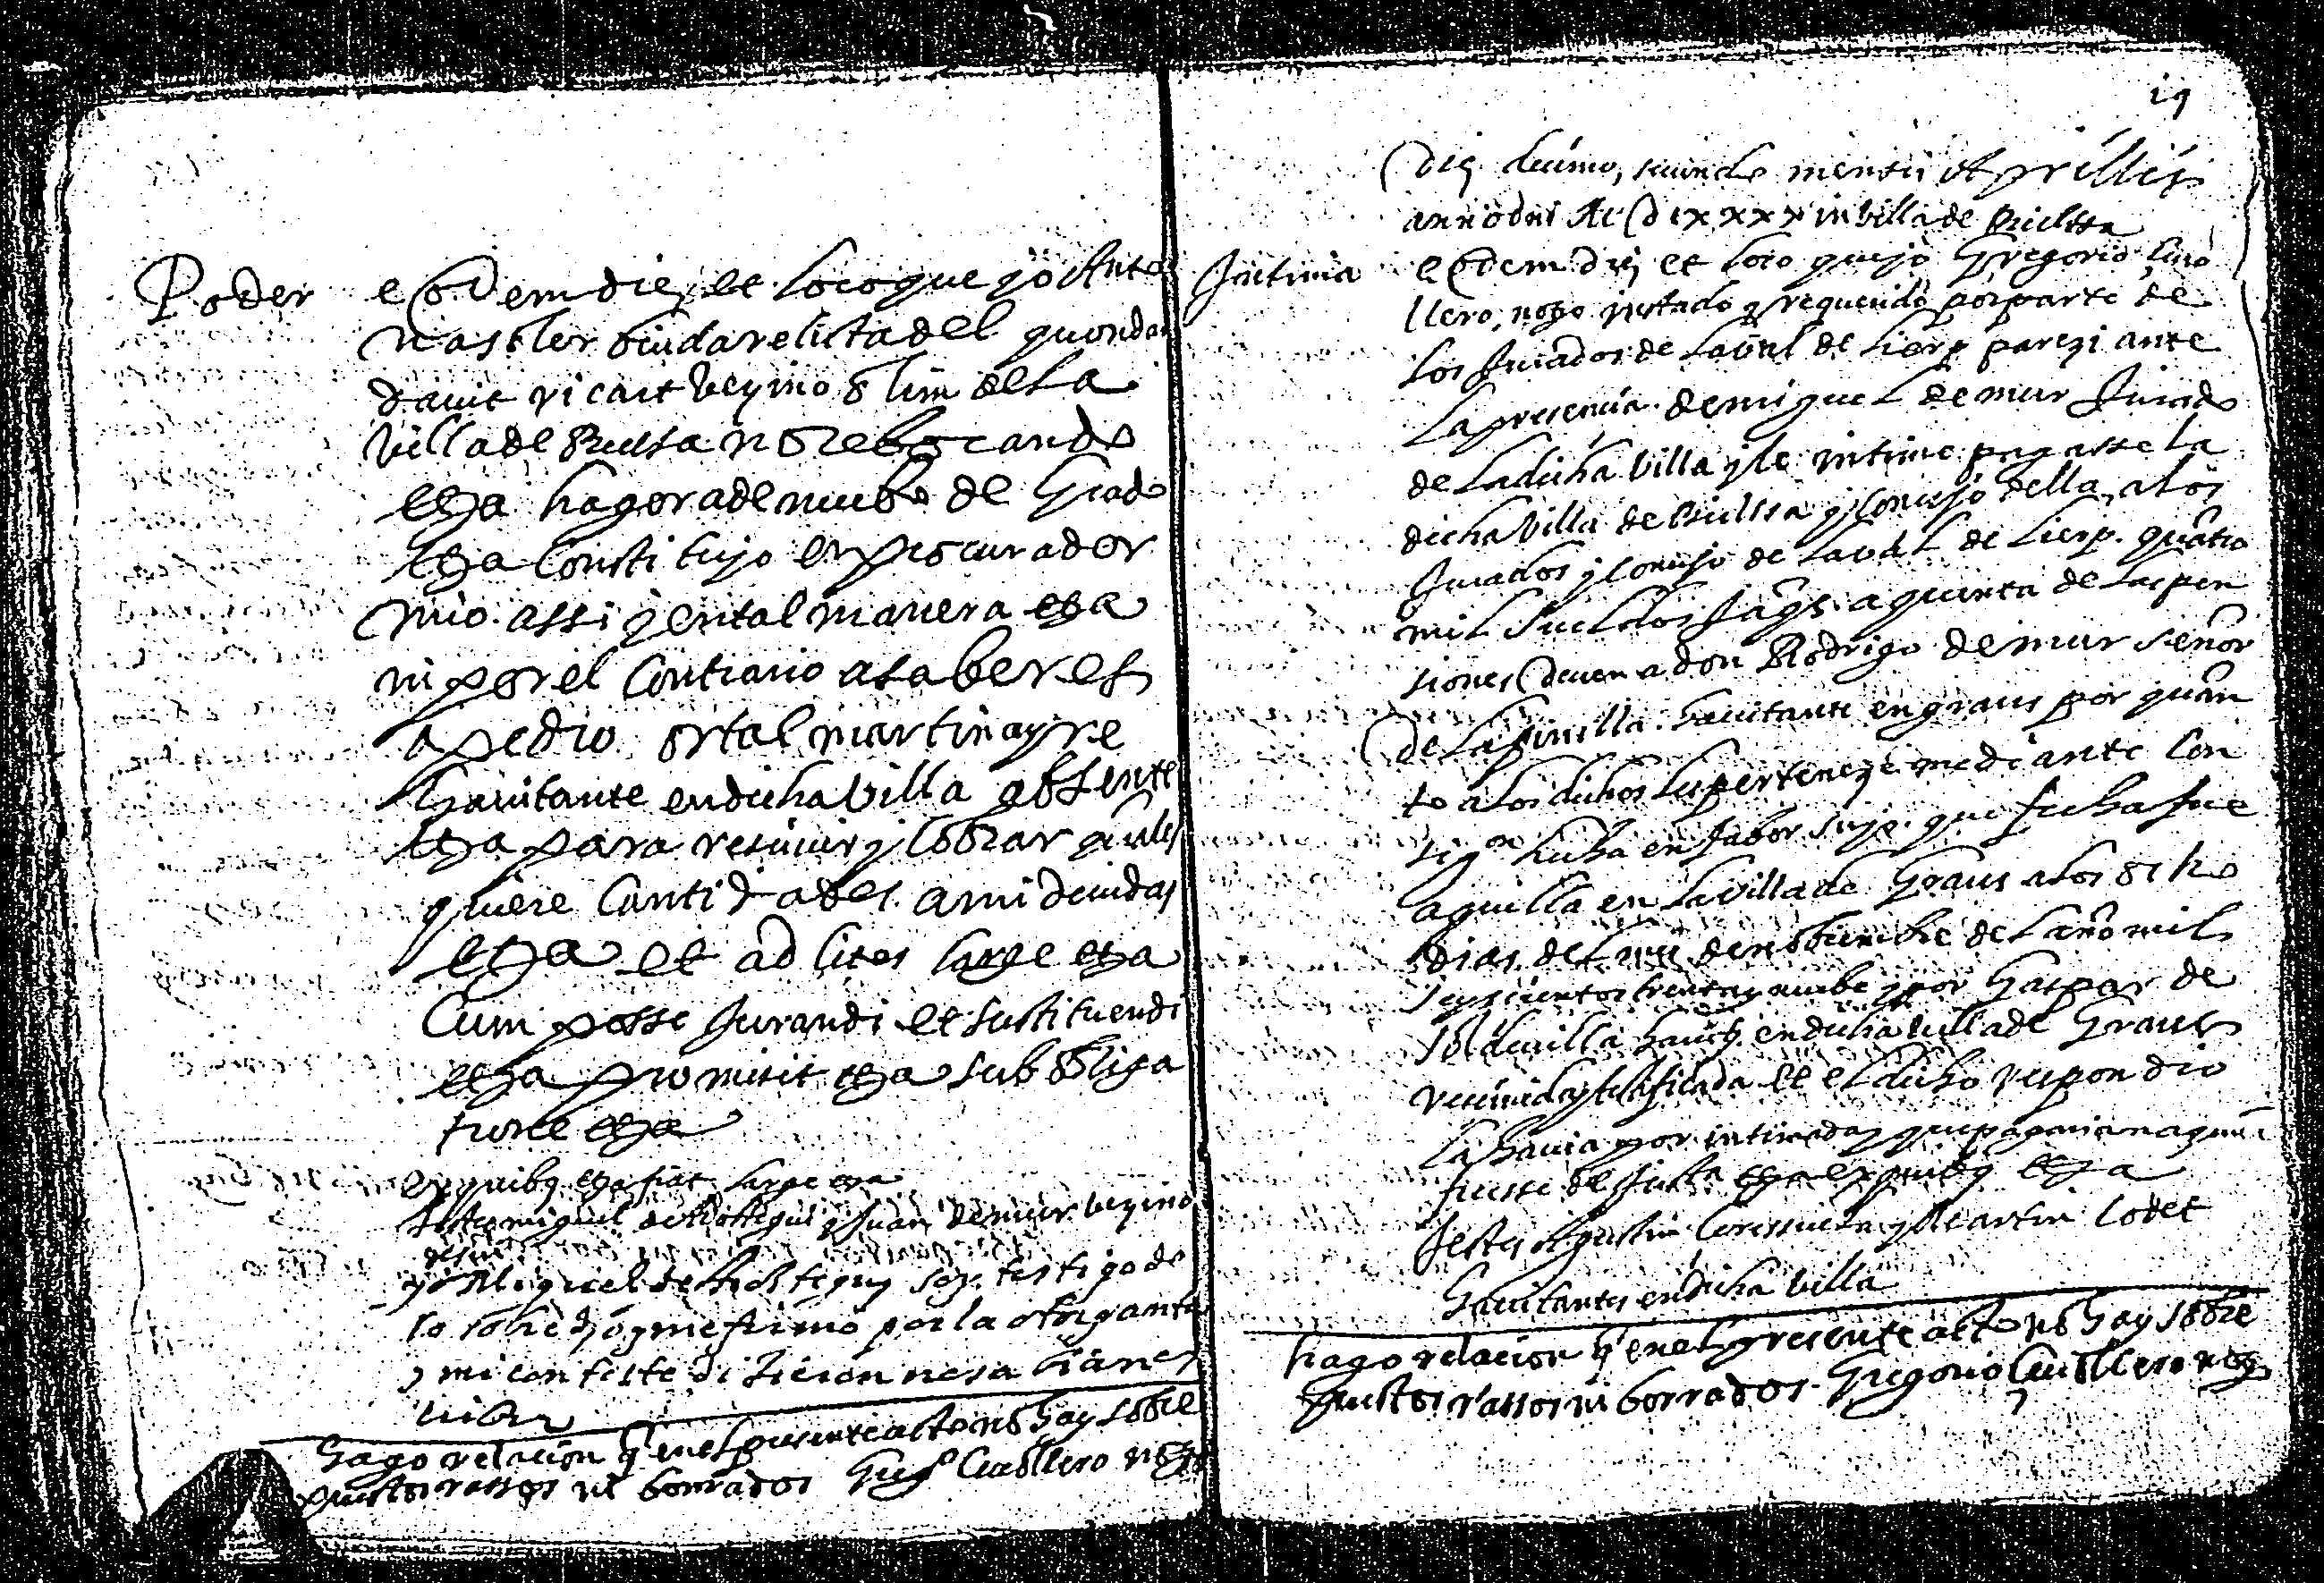 Poder
eodem die et loco que yo Anto
nastler biuda relicta del quondam
dauit ricart vezino olim de la
villa de Buelsa no rebocando
etza hagora de nuebo de Grado
etza Constituyo en procurador
mio assi y en tal manera etza
ni por el Contrario a saber es
a pedro ortal martin ayre
hauitante en dicha villa absente
etza para resciuir y cobrar quales
quiere Cantidades a mi deuidas
etza et ad lites large etza
Cum posse Jurandi et sustituendi
etza promisit etza sub obliga
tione etza
ex quibus etza fiat large etza
testes miguel de y Juan de mur vezinos
yo Miguel de soy testigo de
lo sobre dho y me firmo por la otorgante
y mi conteste dixieron no sabian es
criber
hago relacion q en el presente acto no hay sobre
puestos rassos ni borrados Gregº Cauallero noto
19
Die decimo, secundo mensis Aprillis
anno dni MDCxxxx in villa de Buelssa
Intima
eodem die et loco que yo Gregorio Caua
llero, noto instado y requerido por parte de
los Jurados de la bal de Lierp parezi ante
la presencia de miguel de mur Jurado
de la dicha villa y le intime pagasse la
dicha villa de Buelssa y concejo della, a los
Jurados y concejo de la val de Lierp. quatro
mil sueldos Jaqs. a quenta de las pen
siones deuen a don Rodrigo de mur señor
de la pinilla hauitante en graus por quan
to a los dichos les perteneze mediante con
sigon hecha en fabor suyo que fecha fue
aquella en la villa de Graus a los ocho
dias del mes de nobiembre del año mil
seyscientos trenta y nuebe y por Gaspar de
hauitte. en dicha villa de Graus
reciuida y testificada et el dicho respondio
la hauia por intimada y que pagarian
fuesse de Justicia etza ex quibus etza
Testes Agustin y Martin Codet
hauitantes en dicha villa
hago relacion q en el presente acto no hay sobre
puestos rassos ni borrados. Gregorio Cauallero noto